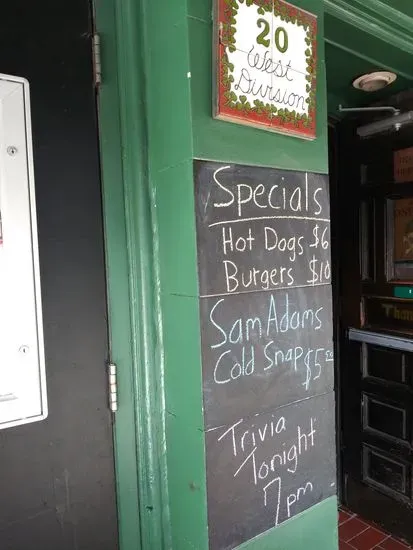 20
West
Division
Specials
Hot Dogs $6
Burgers $10
Sam Adams
Cold Snap $5.00
Trivia
Tonight
7pm